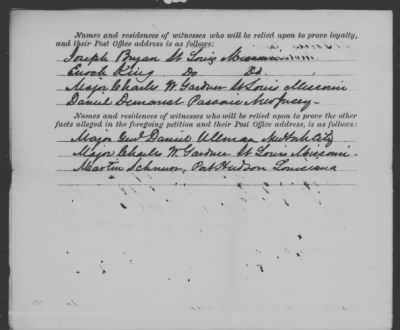 Names and residences of witnesses who will be relied upon to prove loyalty,
and their Post Office address is as follows:
Joseph Bryan St Louis Missouri
Enoch King Do Do
Major Charles W. Gardner St Louis Missouri
Daniel Demarest Passaic New Jersey
Names and residences of witnesses who will be relied upon to prove the other
facts alleged in the foregoing petition and their Post Office address, is as follows:
Major Genl Daniel Ullman New York City
Major Charles W. Gardner St Louis Missouri
Martin Schnurr, Port Hudson Louisiana